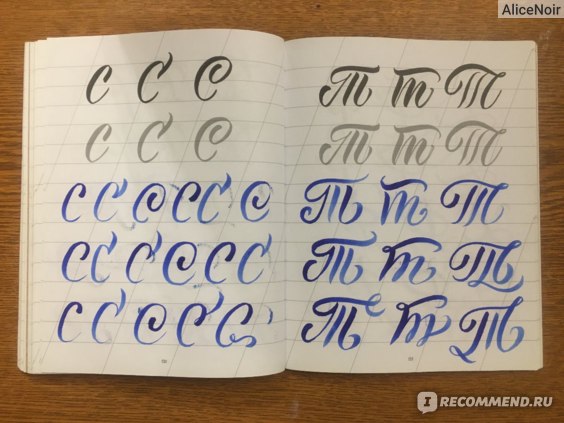 AliceNoir
С С С
С С С
С С С С С С
С С С С С С
С С С С С
Т Т Т
Т Т Т
Т Т Т
Т Т Т
Т Т Т
IRECOMMEND.RU